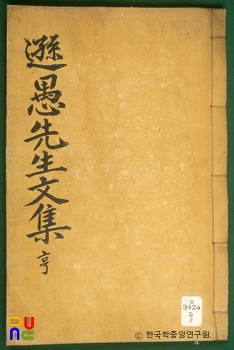 遜愚先生文集
亨
3424
2
ⓒ 한국학중앙연구원